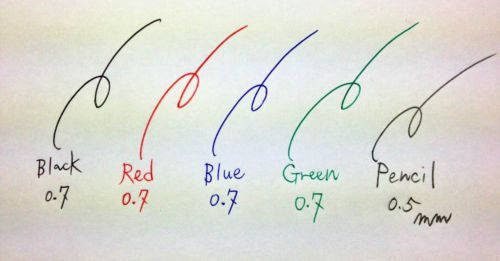 Black Red Blue Green Pencil
0.7 0.7 0.7 0.7 0.5 mm